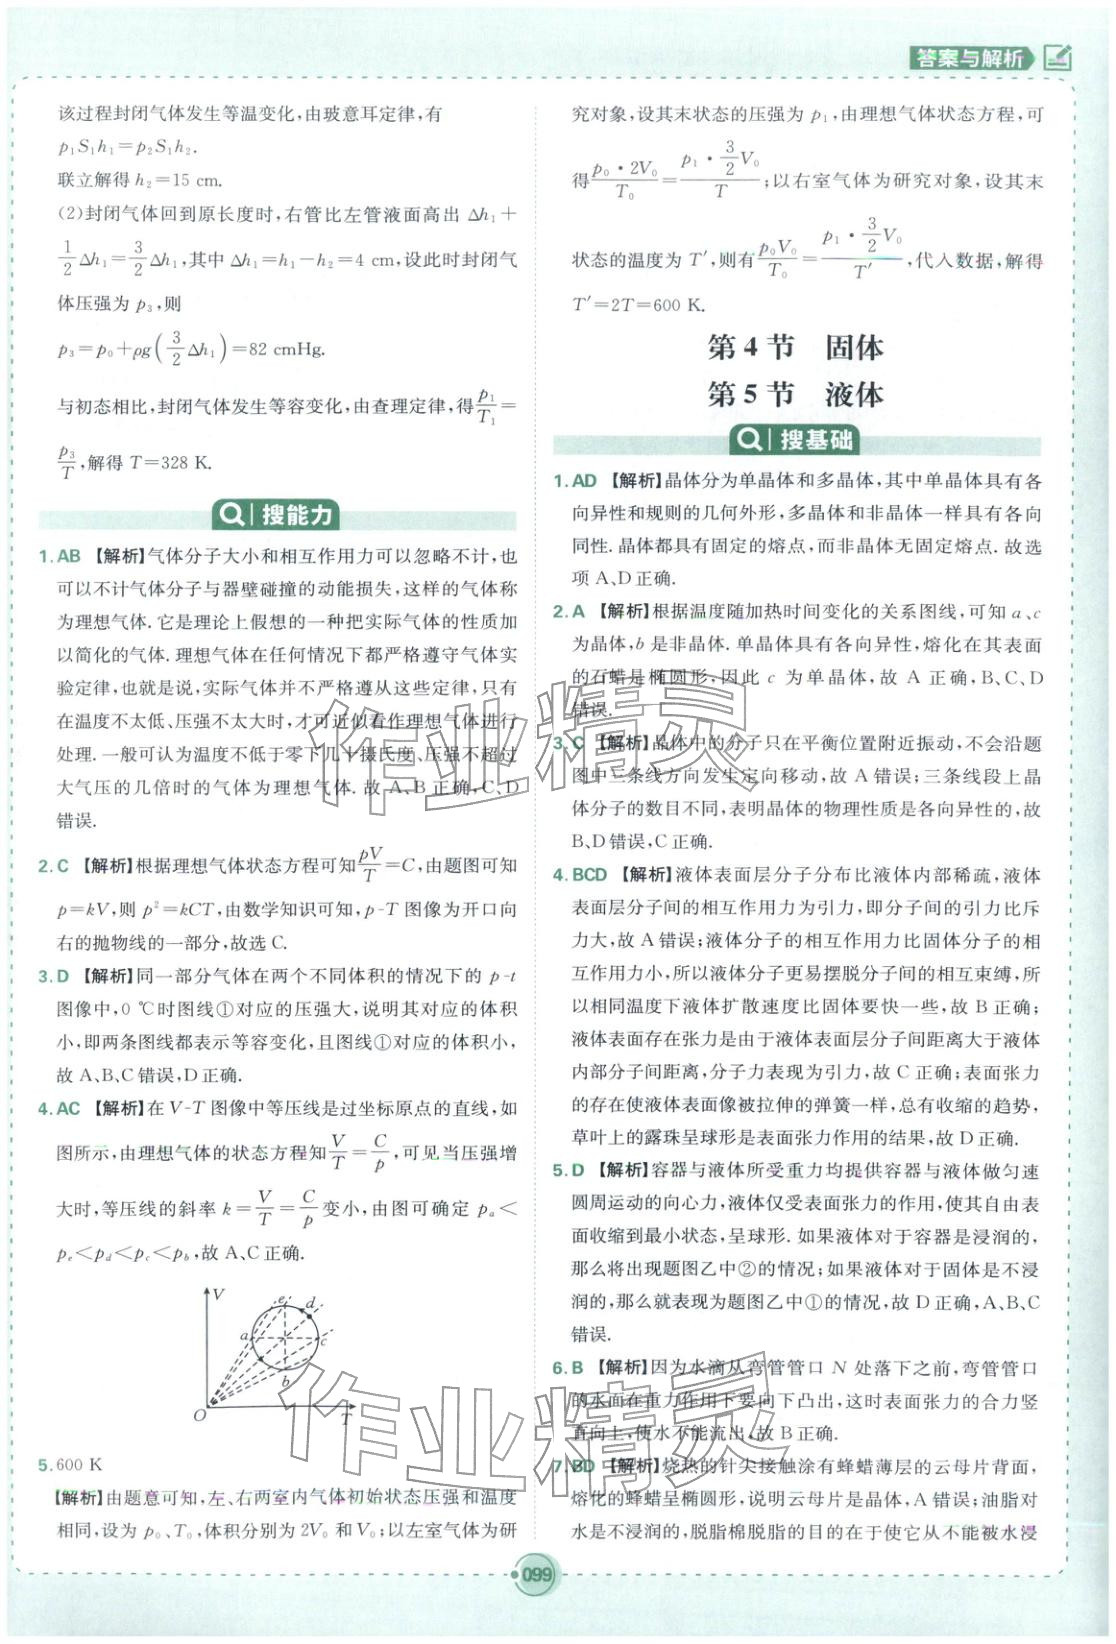 答案与解析
该过程封闭气体发生等温变化,由玻意耳定律,有
p₁S₁h₁=p₂S₁h₂.
联立解得 h₂=15 cm.
(2)封闭气体回到原长度时,右管比左管液面高出 Δh₁+
1/2 Δh₁=3/2 Δh₁,其中 Δh₁=h₁-h₂=4 cm,设此时封闭气
体压强为 p₃,则
p₃=p₀+ρg(3/2 Δh₁)=82 cmHg.
与初态相比,封闭气体发生等容变化,由查理定律,得p₁/T₁=
p₃/T,解得 T=328 K.
搜能力
1. AB 【解析】气体分子大小和相互作用力可以忽略不计,也
可以不计气体分子与器壁碰撞的动能损失,这样的气体称
为理想气体.它是理论上假想的一种把实际气体的性质加
以简化的气体.理想气体在任何情况下都严格遵守气体实
验定律,也就是说,实际气体并不严格遵从这些定律,只有
在温度不太低、压强不太大时,才可近似看作理想气体进行
处理.一般可认为温度不低于零下几十摄氏度、压强不超过
大气压的几倍时的气体为理想气体.故 A、B 正确,C、D
错误.
2. C 【解析】根据理想气体状态方程可知pV/T=C,由题图可知
p=kV,则 p²=kCT,由数学知识可知,p-T 图像为开口向
右的抛物线的一部分,故选 C.
3. D 【解析】同一部分气体在两个不同体积的情况下的 p-t
图像中,0 ℃时图线①对应的压强大,说明其对应的体积
小,即两条图线都表示等容变化,且图线①对应的体积小,
故 A、B、C 错误,D 正确.
4. AC 【解析】在 V-T 图像中等压线是过坐标原点的直线,如
图所示,由理想气体的状态方程知V/T=C/p,可见当压强增
大时,等压线的斜率 k=V/T=C/p变小,由图可确定 pₐ<
pₑ<p_d<p_c<p_b,故 A、C 正确.
V
e
d
a
c
b
O
T
5. 600 K
【解析】由题意可知,左、右两室内气体初始状态压强和温度
相同,设为 p₀、T₀,体积分别为 2V₀ 和 V₀;以左室气体为研
究对象,设其末状态的压强为 p₁,由理想气体状态方程,可
得p₀·2V₀/T₀=p₁·3/2V₀/T;以右室气体为研究对象,设其末
状态的温度为 T′,则有p₀V₀/T₀=p₁·3/2V₀/T′,代入数据,解得
T′=2T=600 K.
第 4 节 固体
第 5 节 液体
搜基础
1. AD 【解析】晶体分为单晶体和多晶体,其中单晶体具有各
向异性和规则的几何外形,多晶体和非晶体一样具有各向
同性.晶体都具有固定的熔点,而非晶体无固定熔点.故选
项 A、D 正确.
2. A 【解析】根据温度随加热时间变化的关系图线,可知 a、c
为晶体,b 是非晶体.单晶体具有各向异性,熔化在其表面
的石蜡是椭圆形,因此 c 为单晶体,故 A 正确,B、C、D
错误.
3. C 【解析】晶体中的分子只在平衡位置附近振动,不会沿题
图中三条线方向发生定向移动,故 A 错误;三条线段上晶
体分子的数目不同,表明晶体的物理性质是各向异性的,故
B、D 错误,C 正确.
4. BCD 【解析】液体表面层分子分布比液体内部稀疏,液体
表面层分子间的相互作用力为引力,即分子间的引力比斥
力大,故 A 错误;液体分子的相互作用力比固体分子的相
互作用力小,所以液体分子更易摆脱分子间的相互束缚,所
以相同温度下液体扩散速度比固体要快一些,故 B 正确;
液体表面存在张力是由于液体表面层分子间距离大于液体
内部分子间距离,分子力表现为引力,故 C 正确;表面张力
的存在使液体表面像被拉伸的弹簧一样,总有收缩的趋势,
草叶上的露珠呈球形是表面张力作用的结果,故 D 正确.
5. D 【解析】容器与液体所受重力均提供容器与液体做匀速
圆周运动的向心力,液体仅受表面张力的作用,使其自由表
面收缩到最小状态,呈球形.如果液体对于容器是浸润的,
那么将出现题图乙中②的情况;如果液体对于固体是不浸
润的,那么就表现为题图乙中①的情况,故 D 正确,A、B、C
错误.
6. B 【解析】因为水滴从弯管管口 N 处落下之前,弯管管口
的水面在重力作用下要向下凸出,这时表面张力的合力竖
直向上,使水不能流出,故 B 正确.
7. BD 【解析】烧热的针尖接触涂有蜂蜡薄层的云母片背面,
熔化的蜂蜡呈椭圆形,说明云母片是晶体,A 错误;油脂对
水是不浸润的,脱脂棉脱脂的目的在于使它从不能被水浸
作业精灵
作业精灵
099